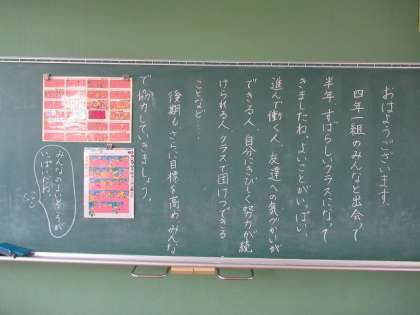 おはようございます。
四年一組のみんなと出会って
半年、すばらしいクラスになって
きましたね。よいことがいっぱい。
進んで働く人、友達への気づかいが
できる人、自分にきびしく努力が続
けられる人、クラスで団けつできる
ことなど…。
後期も、さらに目標を高め、みんな
で協力していきましょう。
みんなのよいところが
いっぱいだね。